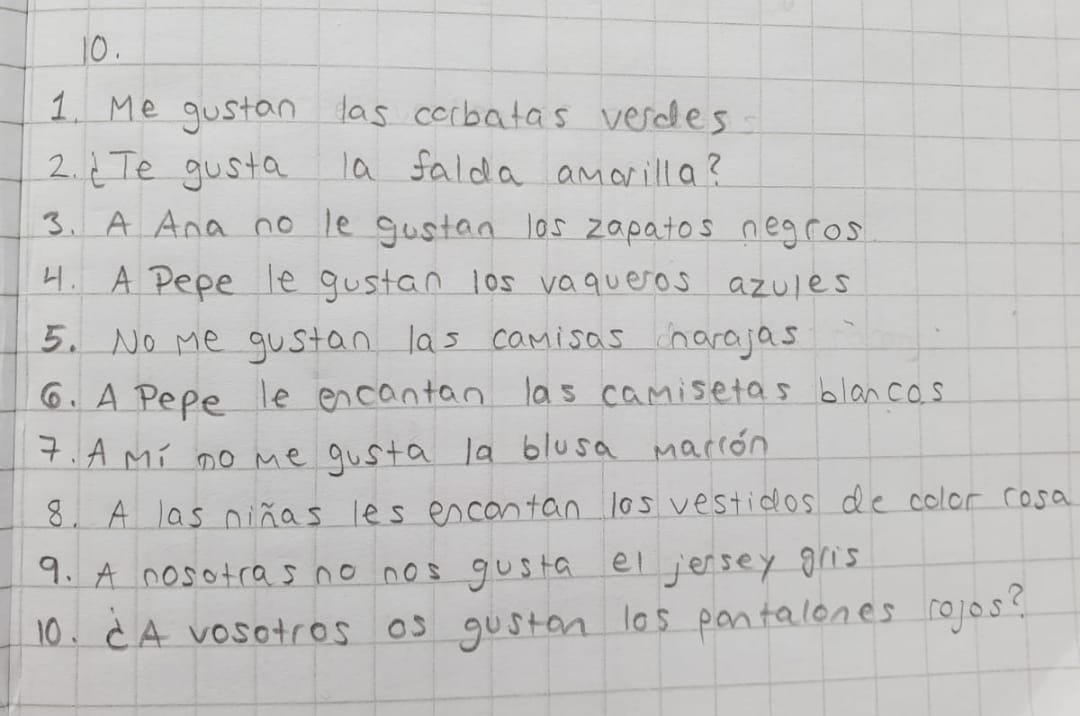 10.
1. Me gustan las corbatas verdes
2. ¿Te gusta la falda amarilla?
3. A Ana no le gustan los zapatos negros
4. A Pepe le gustan los vaqueros azules
5. No me gustan las camisas narajas
6. A Pepe le encantan las camisetas blancas
7. A mí no me gusta la blusa marrón
8. A las niñas les encantan los vestidos de color rosa
9. A nosotras no nos gusta el jersey gris
10. ¿A vosotros os gustan los pantalones rojos?